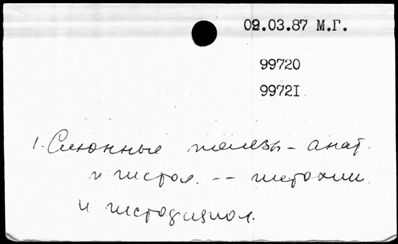 02.03.87 М.Г.
99720
99721
1. Слюнные железы - анат.
и гистол. -- гистохим.
и гистофизиол.